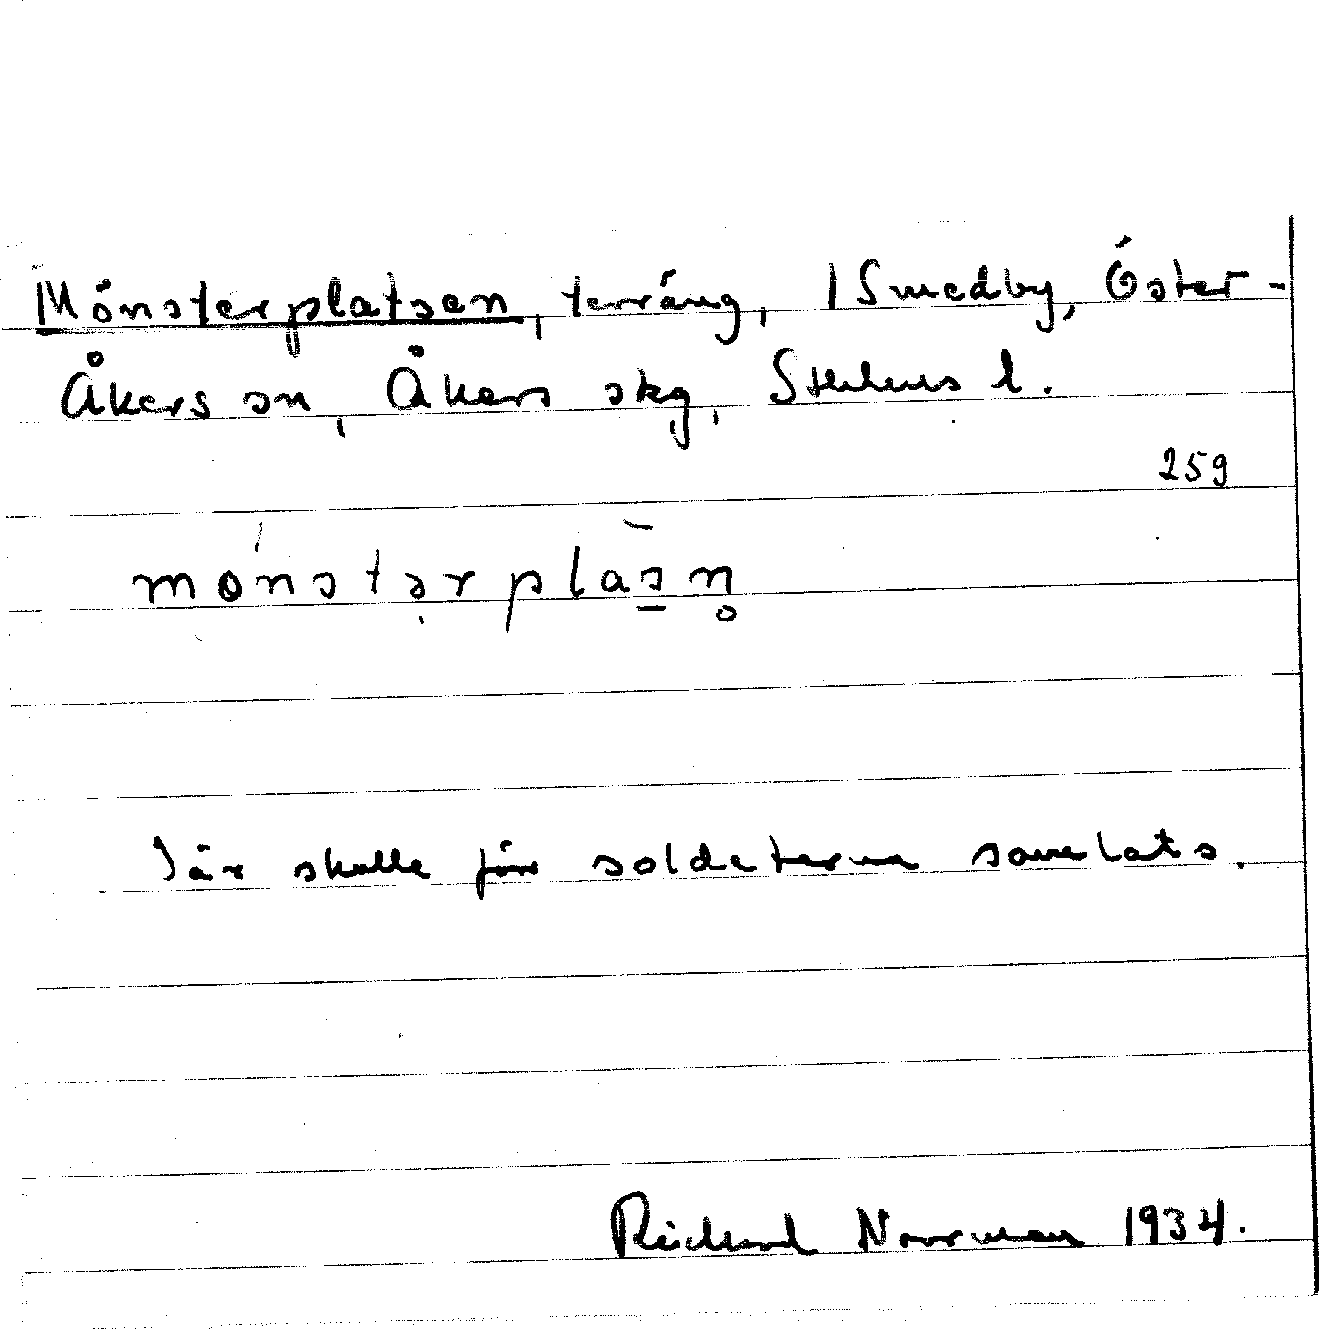 Mönsterplatsen, terräng, 1 Smedby, Öster-
Åkers sn, Åkers skg, Sthlms l.
259
mönstərplasn̥
Där skulle förr soldaterna samlats.
Rickard Norrman 1934.